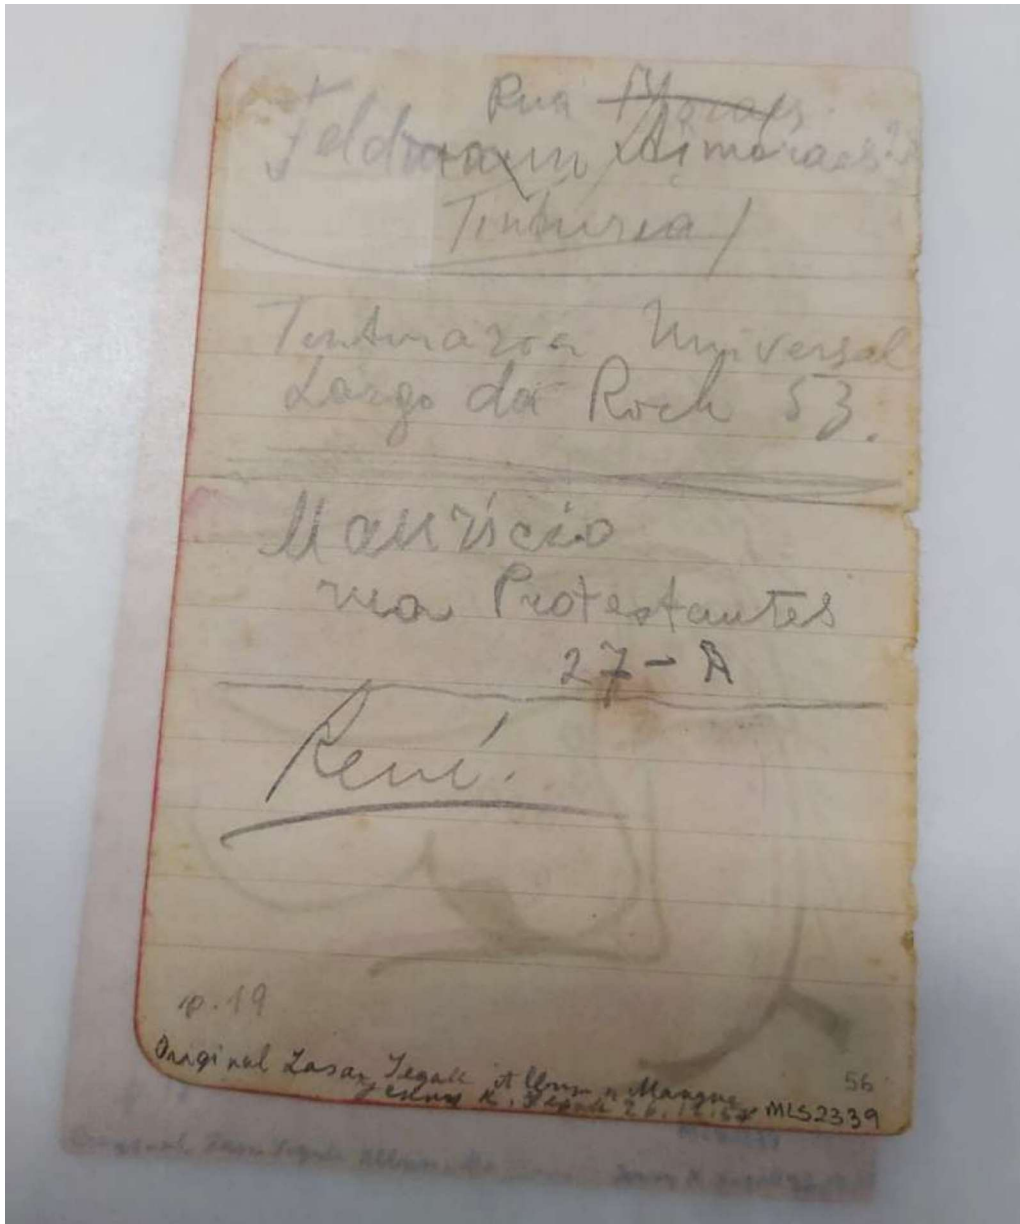 Rua
Feldmann Aimoraes
Tinturia
Tinturaria Universal
Largo da Roch 53.
Mauricio
rua Protestantes
27-A
René.
p. 19
Original Lasar Segall Album Mangue
Jenny K. Segall
56
MLS2339